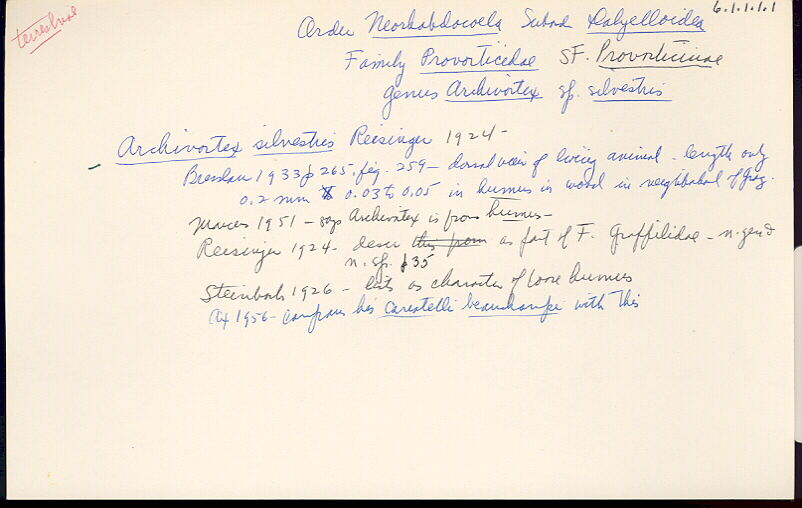 terrestrial
6.1.1.1.1
Order Neorhabdocoela Subord Dalyelloidea
Family Provorticidae SF. Provorticinae
genus Archivortex sp. silvestris
Archivortex silvestris Reisinger 1924 -
Bresslau 1933 p 265, fig. 259 - dorsal view of living animal - length only
0.2 mm X 0.03 to 0.05 in humus in wood in neighbohod of Graz.
Marcus 1951 - says Archivortex is from humus -
Reisinger 1924 - descr this from as part of F. Graffilidae - n. gen &
n. sp. p 35
Steinbock 1926 - lists as character of loose humus
Ax 1956 - compares his Canetelli beauchampi with this